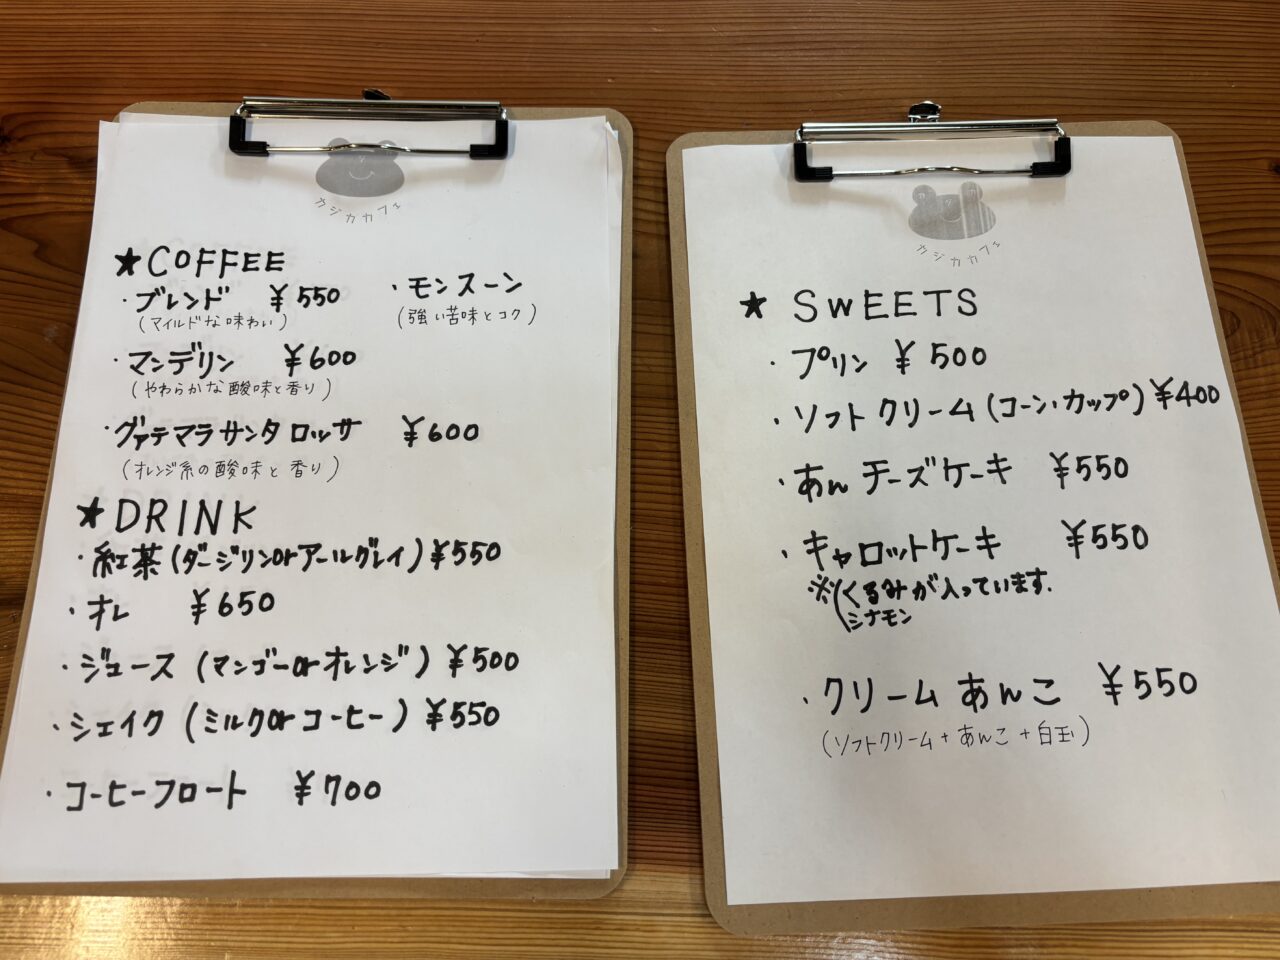 カジカカフェ
★COFFEE
・ブレンド ¥550 ・モンスーン
(マイルドな味わい) (強い苦味とコク)
・マンデリン ¥600
(やわらかな酸味と香り)
・グァテマラサンタロッサ ¥600
(オレンジ系の酸味と香り)
★DRINK
・紅茶(ダージリンorアールグレイ)¥550
・オレ ¥650
・ジュース(マンゴーorオレンジ)¥500
・シェイク(ミルクorコーヒー)¥550
・コーヒーフロート ¥700
カジカカフェ
★ SWEETS
・プリン ¥500
・ソフトクリーム(コーン・カップ)¥400
・あんチーズケーキ ¥550
・キャロットケーキ ¥550
※(くるみが入っています.
シナモン
・クリームあんこ ¥550
(ソフトクリーム+あんこ+白玉)